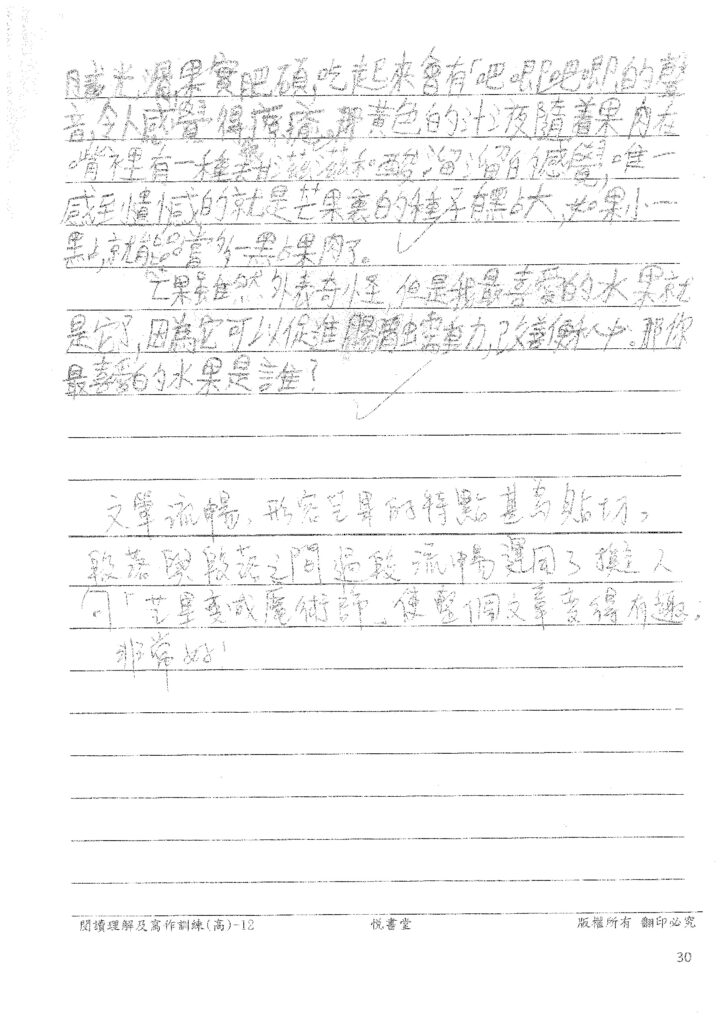 膚光滑,果實肥碩,吃起來會有「吧唧吧唧」的聲
音,令人感覺得療癒。那黃色的汁液隨着果肉在
嘴裡有一種甜滋滋和酸溜溜的感覺,唯一
感到憾的就是芒果裏的種子有點大,如果小一
點,就能品嘗多一點果肉了。
芒果雖然外表奇怪,但是我最喜愛的水果就
是它了,因為它可以促進腸胃蠕動力,改善便秘。那你
最喜愛的水果是誰?
文筆流暢,形容芒果的特點甚為貼切。
段落與段落之間過段流暢運用了擬人
句「芒果變成魔術師」使整個文章變得有趣,
非常好!
閱讀理解及寫作訓練(高)-12 悅書堂 版權所有 翻印必究
30